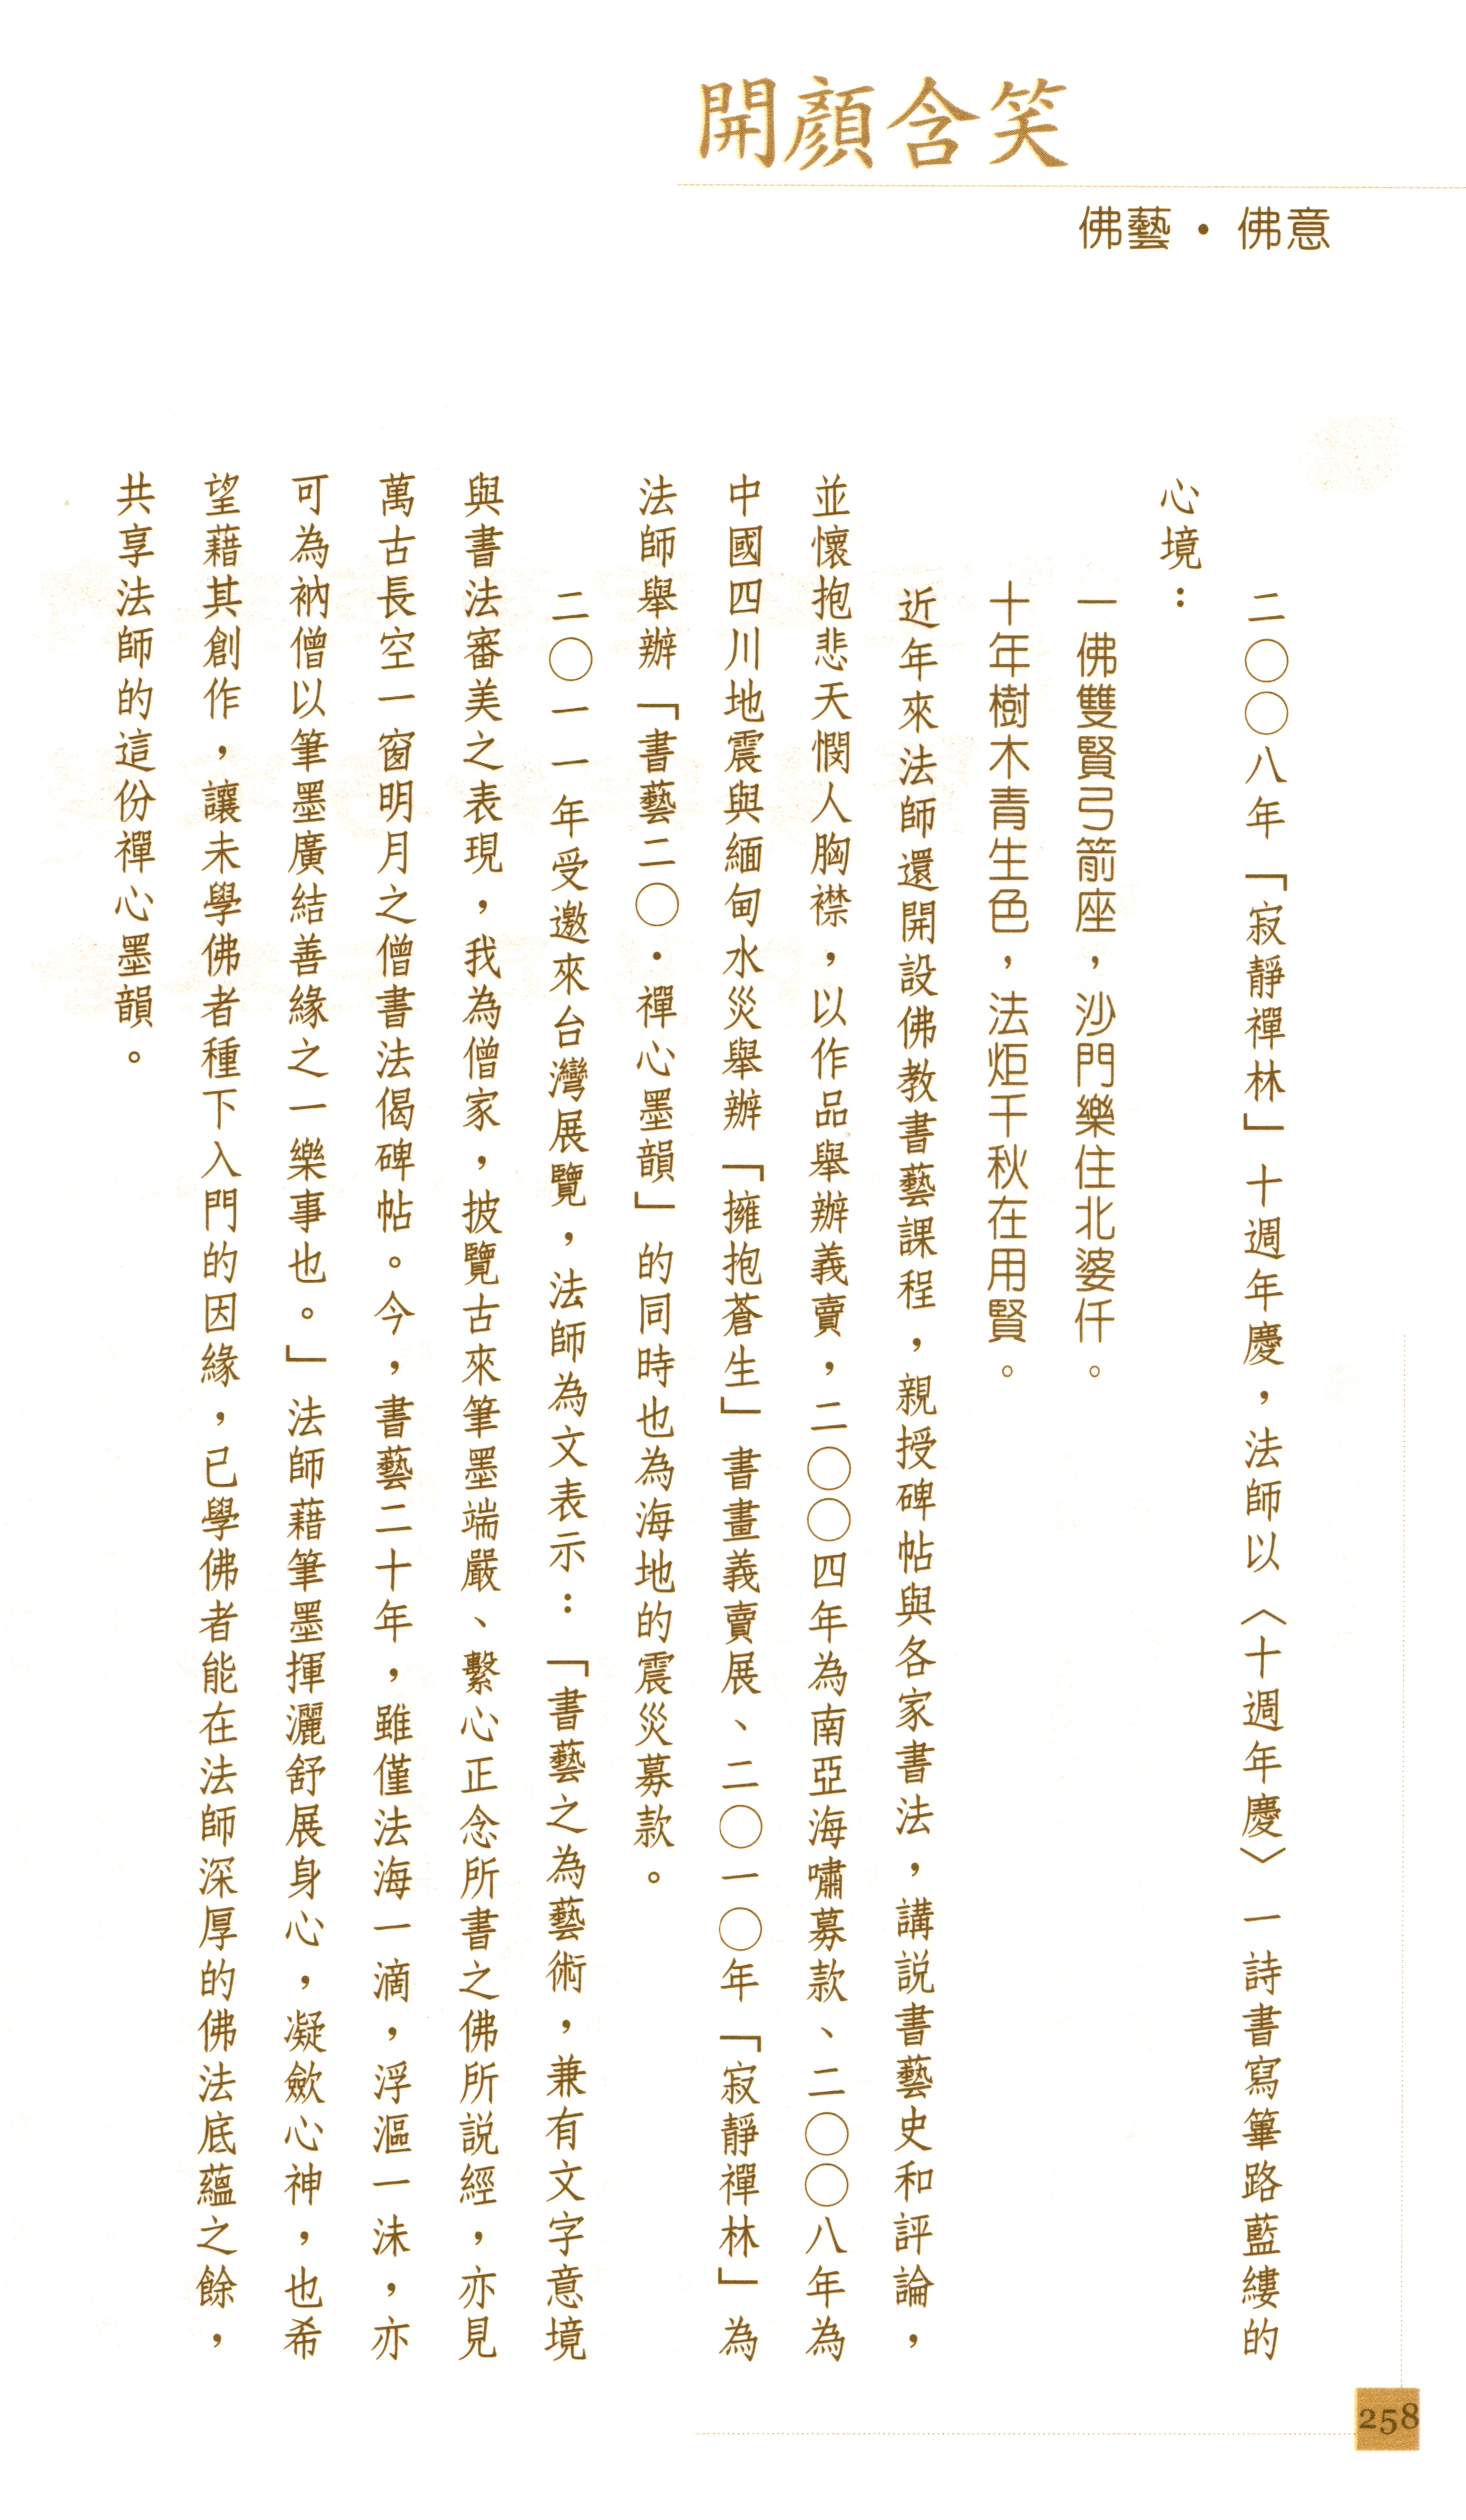 開顏含笑
佛藝・佛意
二〇〇八年「寂靜禪林」十週年慶，法師以〈十週年慶〉一詩書寫篳路藍縷的
心境：
一佛雙賢弓箭座，沙門樂住北婆仟。
十年樹木青生色，法炬千秋在用賢。
近年來法師還開設佛教書藝課程，親授碑帖與各家書法，講說書藝史和評論，
並懷抱悲天憫人胸襟，以作品舉辦義賣，二〇〇四年為南亞海嘯募款、二〇〇八年為
中國四川地震與緬甸水災舉辦「擁抱蒼生」書畫義賣展、二〇一〇年「寂靜禪林」為
法師舉辦「書藝二〇．禪心墨韻」的同時也為海地的震災募款。
二〇一一年受邀來台灣展覽，法師為文表示：「書藝之為藝術，兼有文字意境
與書法審美之表現，我為僧家，披覽古來筆墨端嚴、繫心正念所書之佛所說經，亦見
萬古長空一窗明月之僧書法偈碑帖。今，書藝二十年，雖僅法海一滴，浮漚一沫，亦
可為衲僧以筆墨廣結善緣之一樂事也。」法師藉筆墨揮灑舒展身心，凝歛心神，也希
望藉其創作，讓未學佛者種下入門的因緣，已學佛者能在法師深厚的佛法底蘊之餘，
共享法師的這份禪心墨韻。
258